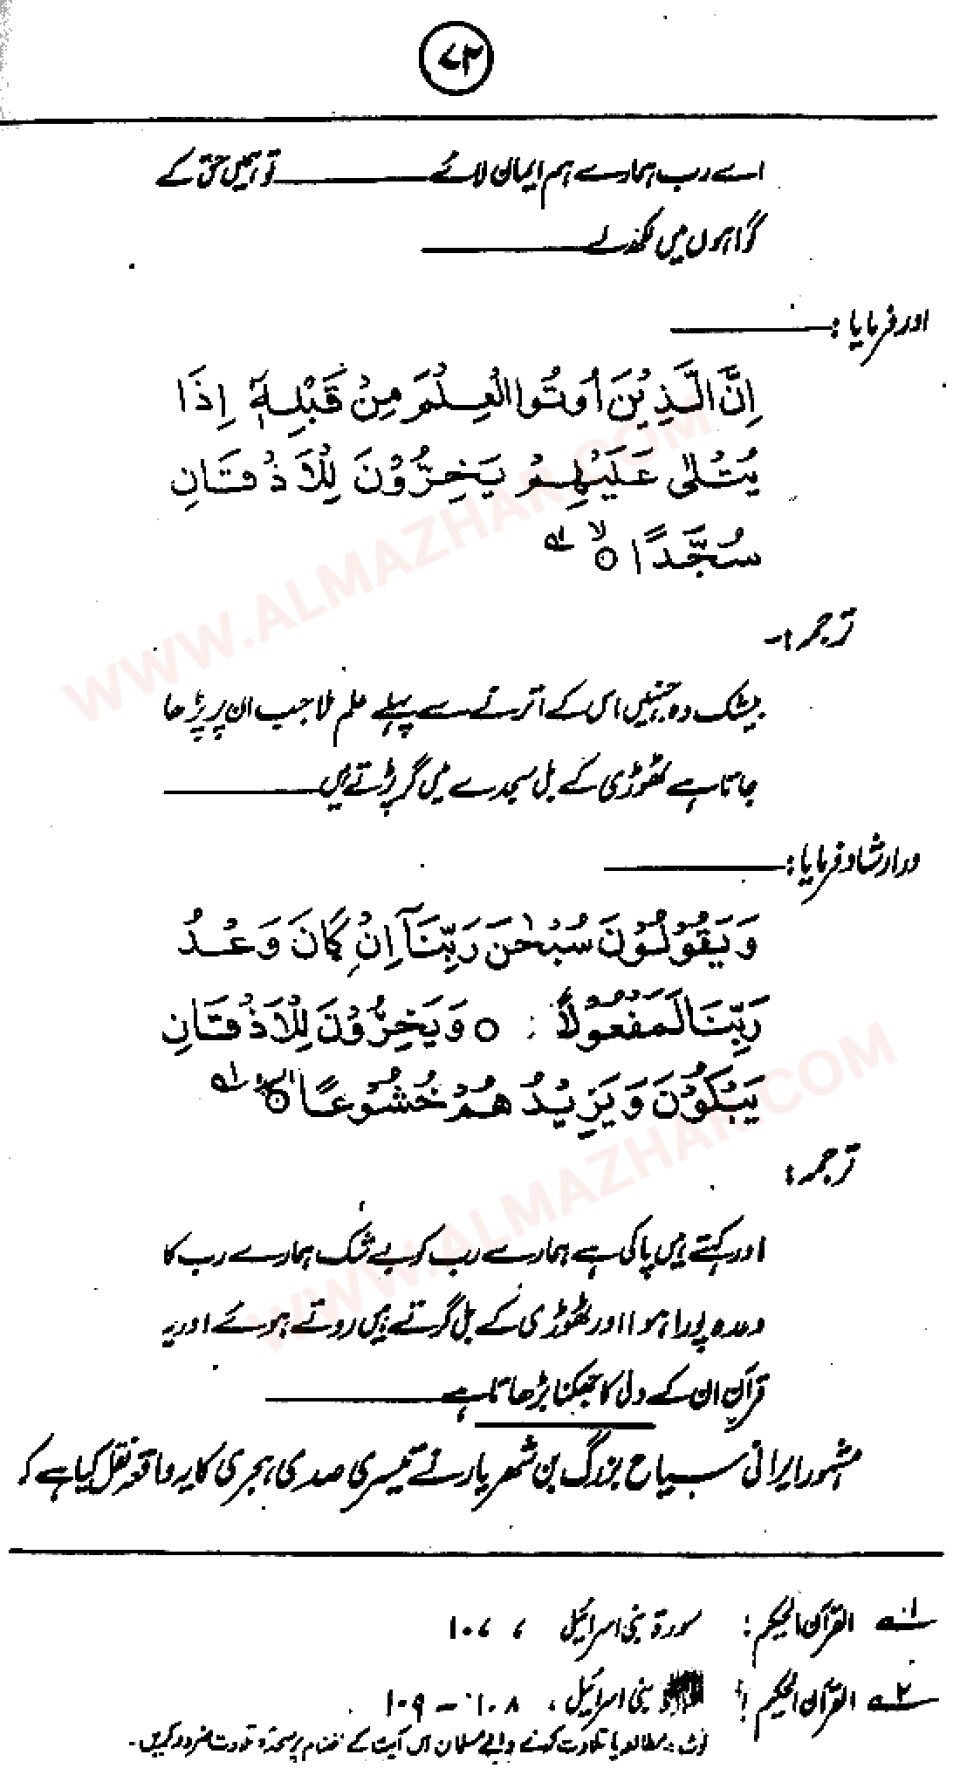 ۷۲
اے رب ہمارے ہم ایمان لائے ـــــــــ تو ہمیں حق کے
گواہوں میں لکھ لے ـــــــــ
اور فرمایا: ـــــــــ
اِنَّ الَّذِيْنَ اُوْتُوا الْعِلْمَ مِنْ قَبْلِهٖٓ اِذَا
يُتْلٰى عَلَيْهِمْ يَخِرُّوْنَ لِلْاَذْقَانِ
سُجَّدًا ۙ ○ ۱؎
ترجمہ :-
بیشک وہ جنہیں اس کے اترنے سے پہلے علم ملا جب ان پر پڑھا
جاتا ہے ٹھوڑی کے بل سجدے میں گر پڑتے ہیں ـــــــــ
ور ارشاد فرمایا: ـــــــــ
وَيَقُوْلُوْنَ سُبْحٰنَ رَبِّنَآ اِنْ كَانَ وَعْدُ
رَبِّنَا لَمَفْعُوْلًا ○ وَيَخِرُّوْنَ لِلْاَذْقَانِ
يَبْكُوْنَ وَيَزِيْدُهُمْ خُشُوْعًا ○ السجدۃ
ترجمہ :
اور کہتے ہیں پاکی ہے ہمارے رب کو بے شک ہمارے رب کا
وعدہ پورا ہوا اور ٹھوڑی کے بل گرتے ہیں روتے ہوئے اور یہ
قرآن ان کے دل کا جھکنا بڑھاتا ہے ـــــــــ
مشہور ایرانی سیاح بزرگ بن شہریار نے تیسری صدی ہجری کا یہ واقعہ نقل کیا ہے کہ
۱؎ القرآن الحکیم : سورۃ بنی اسرائیل ، ۱۰۷
۲؎ القرآن الحکیم : بنی اسرائیل ، ۱۰۸ - ۱۰۹
نوٹ : مطالعہ یا تلاوت کرنے والے مسلمان اس آیت کے اختتام پر سجدۂ تلاوت ضرور کریں ۔
WWW.ALMAZHAR.COM
WWW.ALMAZHAR.COM